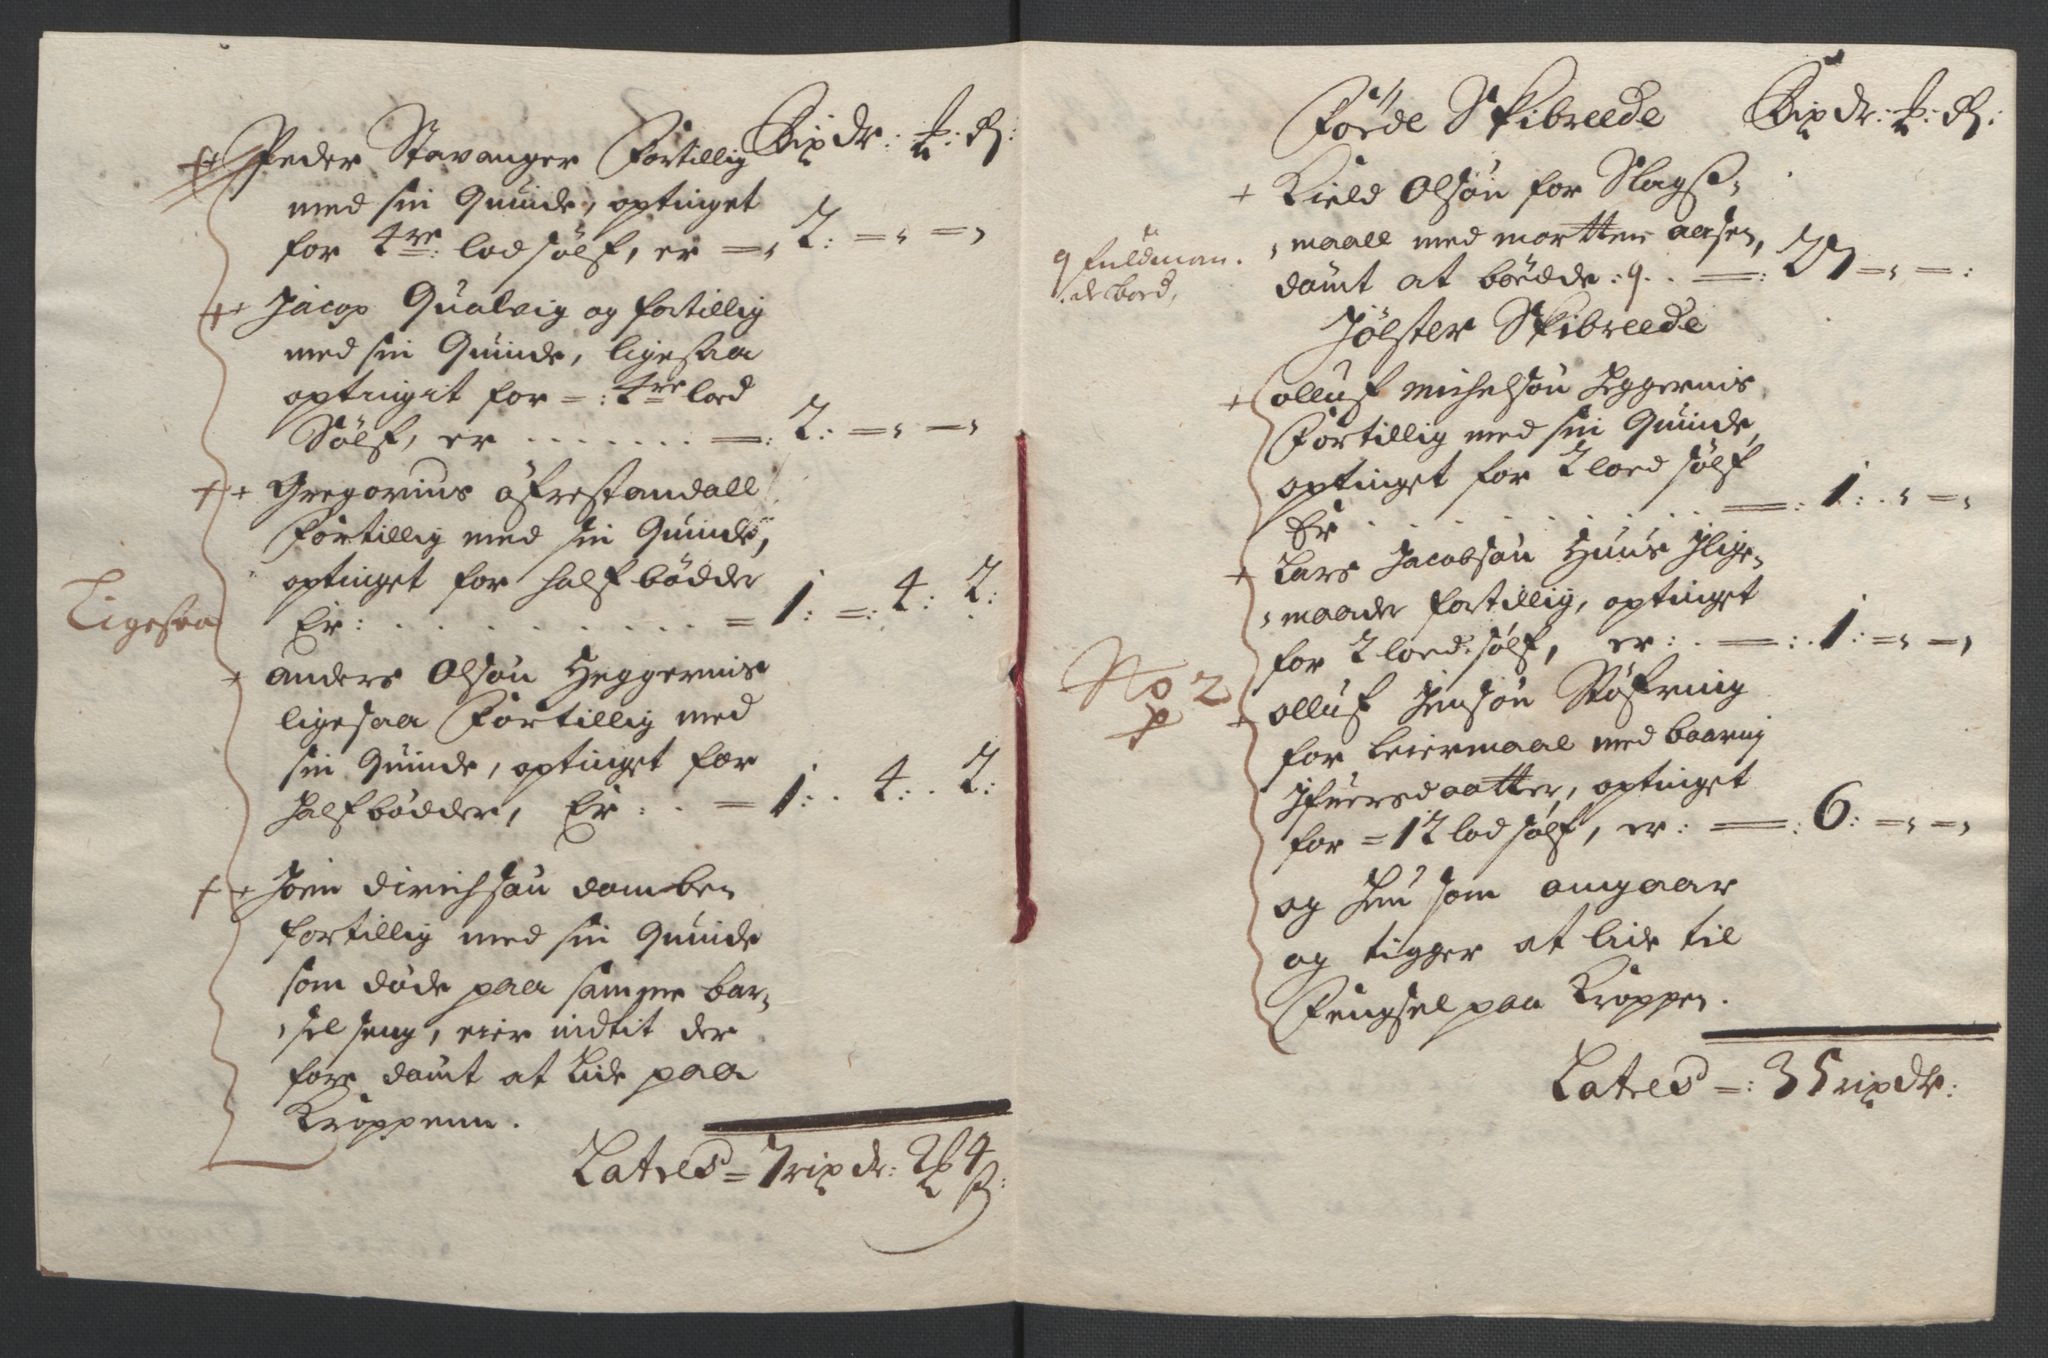 Peder Stavanger Fortillig Rixdr: ꝑ: ß:
med sin Quinde, optinget
for 4re: lod sølf, er =, 2: =, =,
Jacop Qualvig og fortillig
med sin Quinde, ligesaa
optingit for =: 4re lod
Sølf, er . . . . . . . =: 2: =, =,
Gregorius Øfrestandall
Fortillig med sin Quinde,
optinget for half bødder
Er: . . . . . . . . = 1: =: 4: 2:
Ligesaa
Anders Olsøn Heggernis
ligesaa Fortillig med
sin Quinde, optinget for
half bødder, Er: . . = 1: . 4: . 2:
Joen dirichsøn
fortillig med sin Quinde
som døde paa samme bar,
,sel seng, eier indtit der
fore, dømt at Lide paa
Kroppenn.
Lates = 7 rixdr: 2 ꝑ 4 ß:
Førde Skibreede Rixdr: ꝑ: ß:
Kield Olsøn for Slags,
,maall med mortten aasen,
dømt at bøedde: 9. . =: 27 =, =:
9 fuldman.
Jølster Skibreede
olluf Michelsøn Heggernis,
Fortillig med sin Quinde,
optinget for 2 loed sølf
Er . . . . . . . . =: 1: . , =,
Lars Jacobsøn Huus Jlige,
,maade fortillig, optinget
for 2 loed: sølf, er: . =: . 1: =, =,
No 2
olluf Jensøn Støfring
for Leiermaal med baaring
Jfuersdaatter, optinget
for = 12 lod sølf, er: =: 6: =, =,
og hun som omgaar
og tigger at lide til
Fengsel paa Kroppen.
Lates =: 35 rixdr: